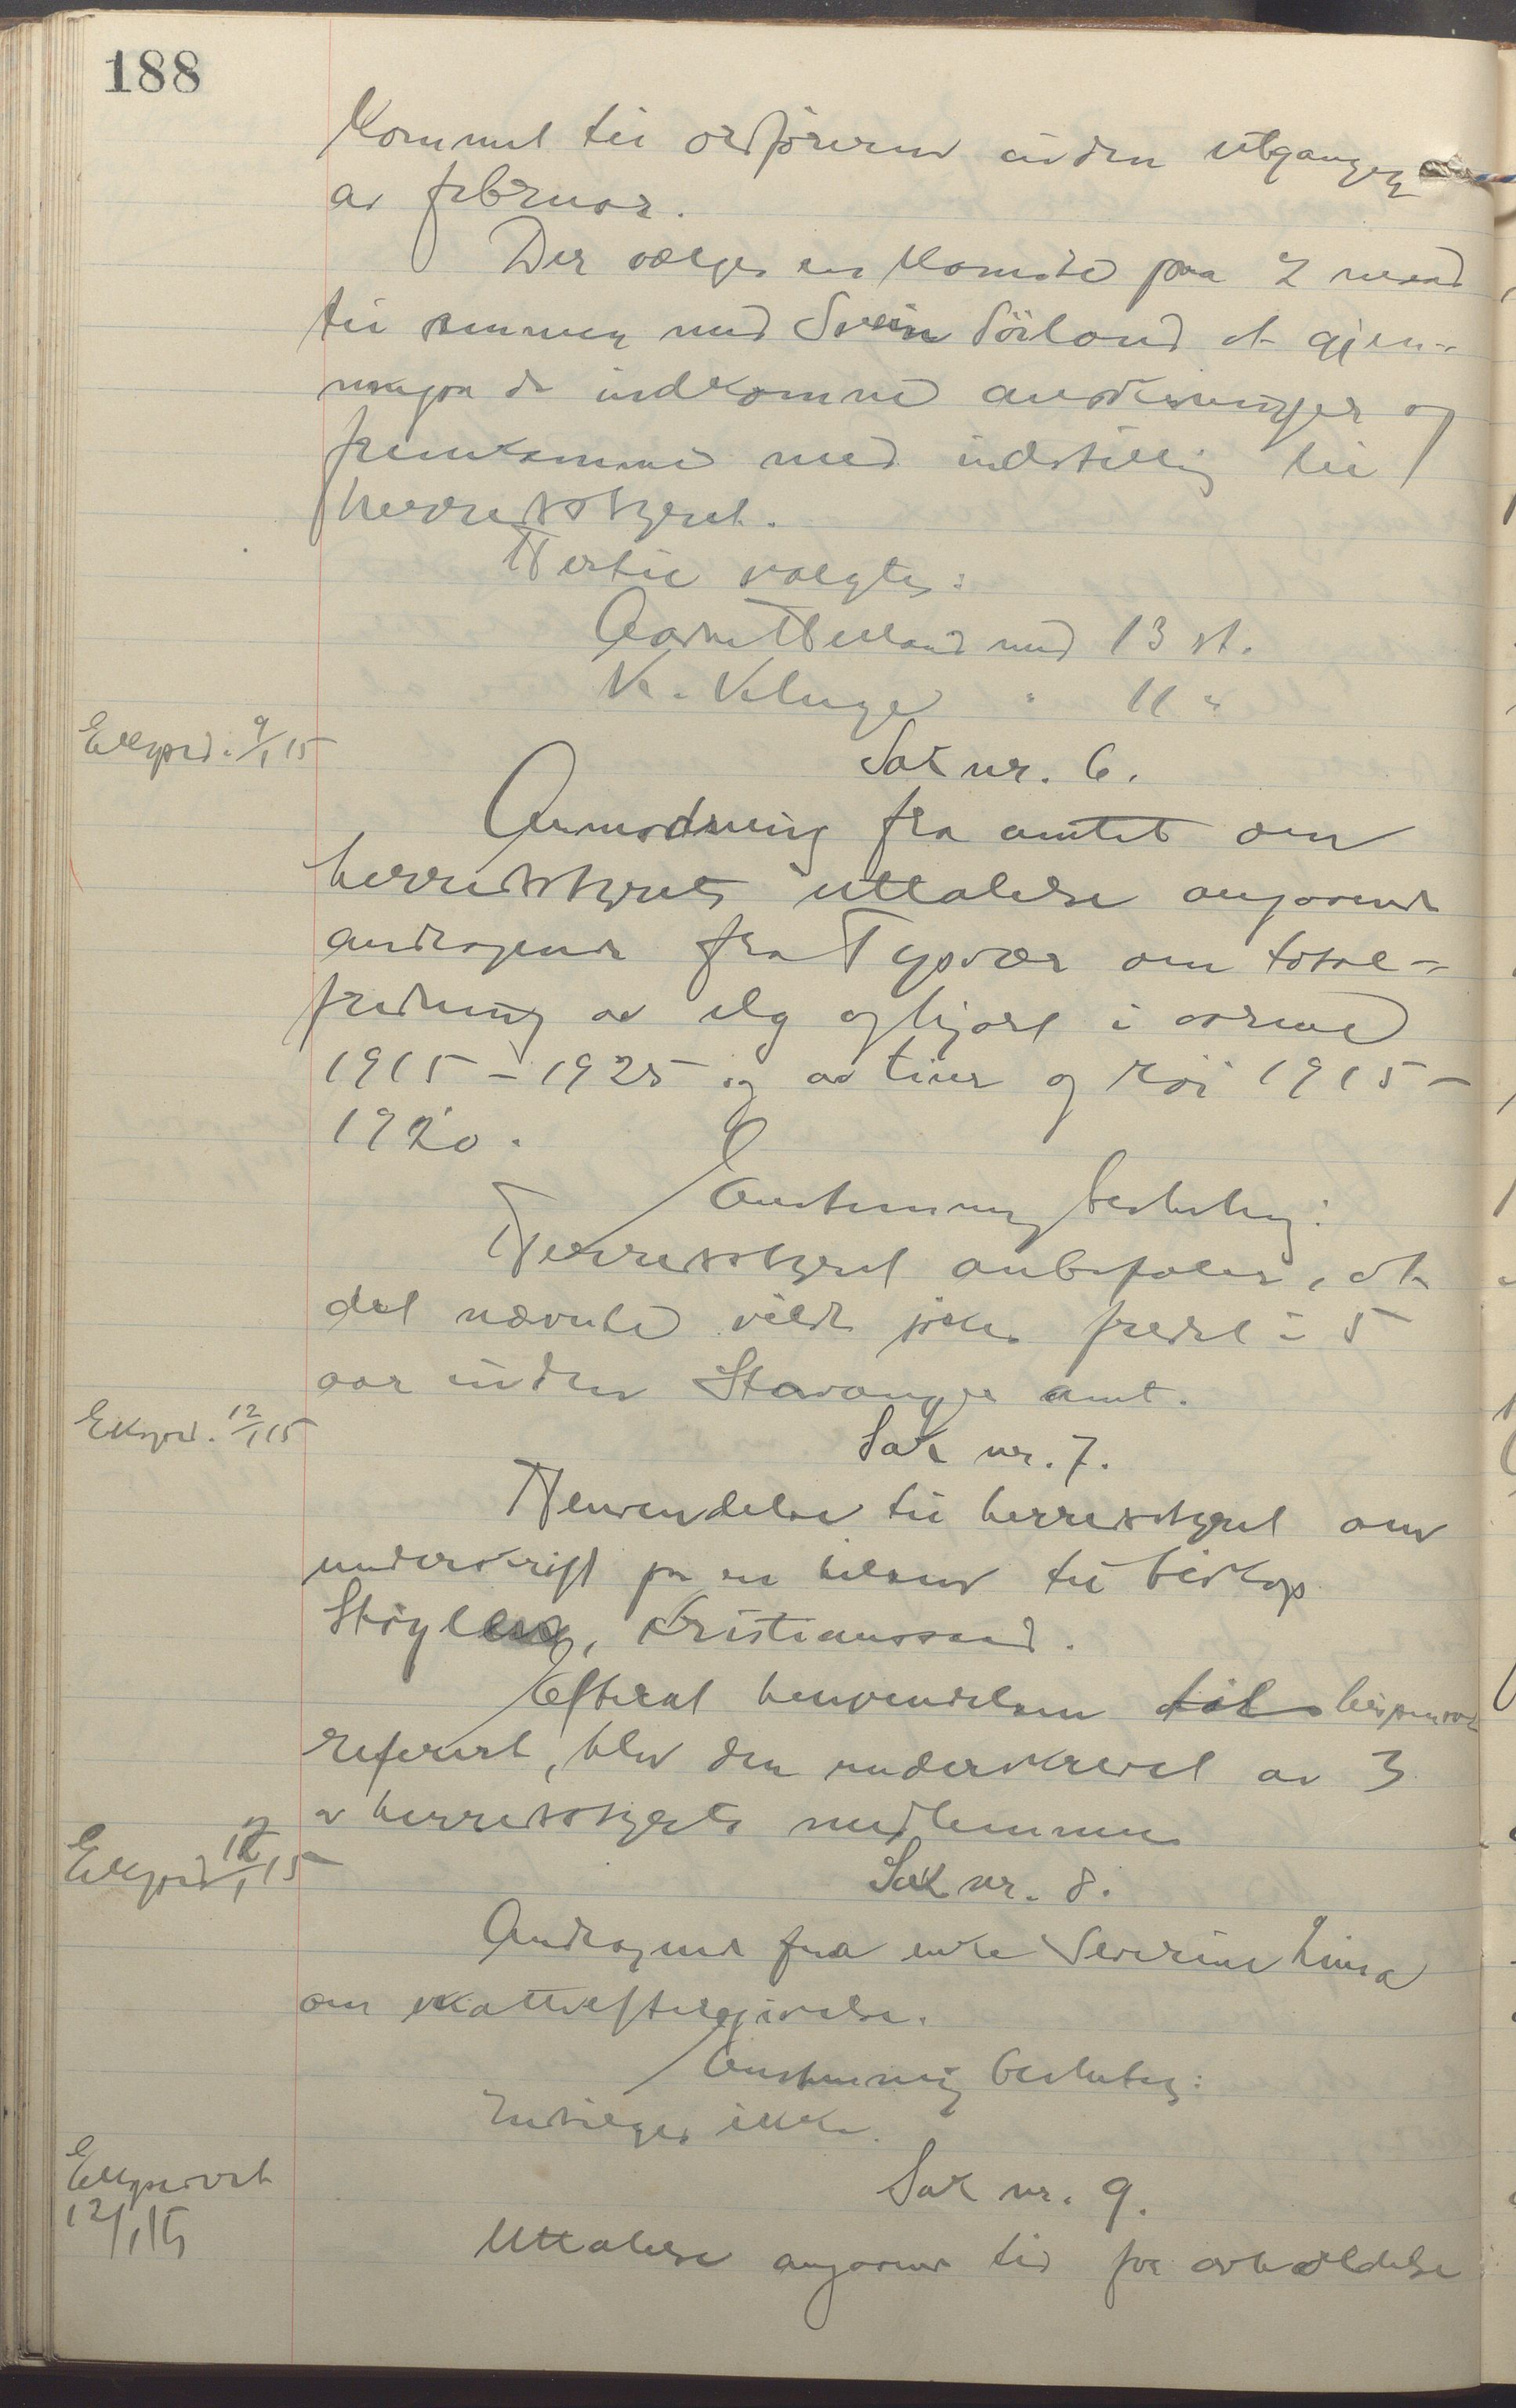 188
kommet til ordføreren inden utgangen
av februar.
Der vælges en komite paa 2 mænd
til sammen med Svein Söiland at gjen-
nemgaa de indkomne ansökninger og
fremkomme med indstilling til
herredsstyret.
Hertil valgtes:
Helland med 13 st.
K. Kluge " 11 "
Eksped. 9/1 15
Sak nr. 6.
Anmodning fra amtet om
herredsstyrets uttalelse angaaende
andragende fra Tysvær om total-
fredning av elg og hjort i aarene
1915 - 1925 og av tiur og röi 1915 -
1920.
Enstemmig beslutning:
Herredsstyret anbefaler, at
det nævnte vildt fredet i 5
aar inden Stavanger amt.
Eksped. 12/1 15
Sak nr. 7.
Henvendelse til herredsstyret om
underskrift paa en hilsen til biskop
Støylen, Kristianssand.
Efterat henvendelsen til bispen var
referert, blev den underskrevet av 3
av herredsstyrets medlemmer
Eksped. 12/1 15
Sak nr. 8.
Andragende fra enke Severine Lima
om skatteeftergivelse.
Enstemmig beslutning:
Indvilges ikke.
Ekspedert
12/1 15
Sak nr. 9.
Uttalelse angaaende tid for avholdelse